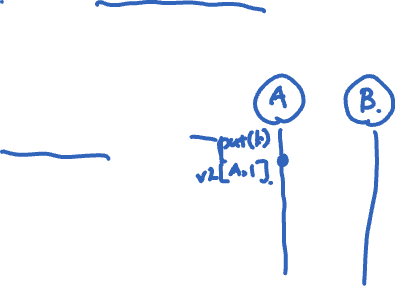 A
B.
put(k)
v2[A,1].